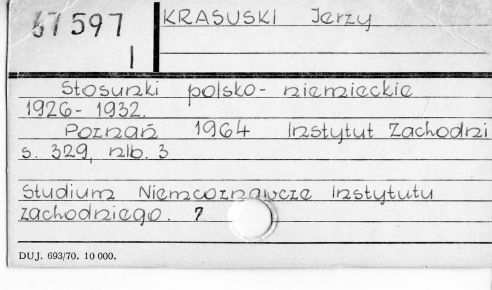 67597
I
KRASUSKI Jerzy
Stosunki polsko-niemieckie
1926-1932.
Poznań 1964 Instytut Zachodni
s. 329, nlb. 3
Studium Niemcoznawcze Instytutu
zachodniego. 7
DUJ. 693/70. 10 000.